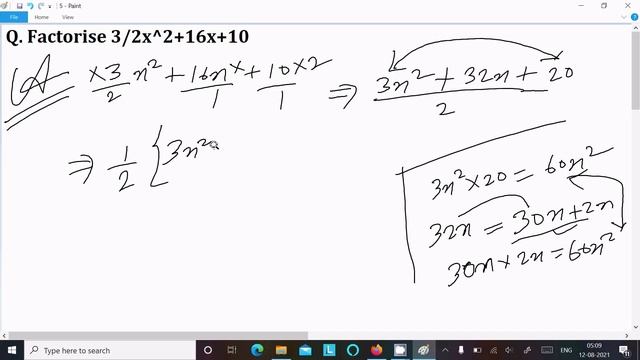 5 - Paint
Q. Factorise 3/2x^2+16x+10
A ×3/2 x² + 16x ×/1 + 10 ×2/1 ⇒ 3x² + 32x + 20/2
⇒ 1/2 { 3x²
3x² × 20 = 60x²
32x = 30x + 2x
30x × 2x = 60x²
Type here to search
ENG
05:09
12-08-2021